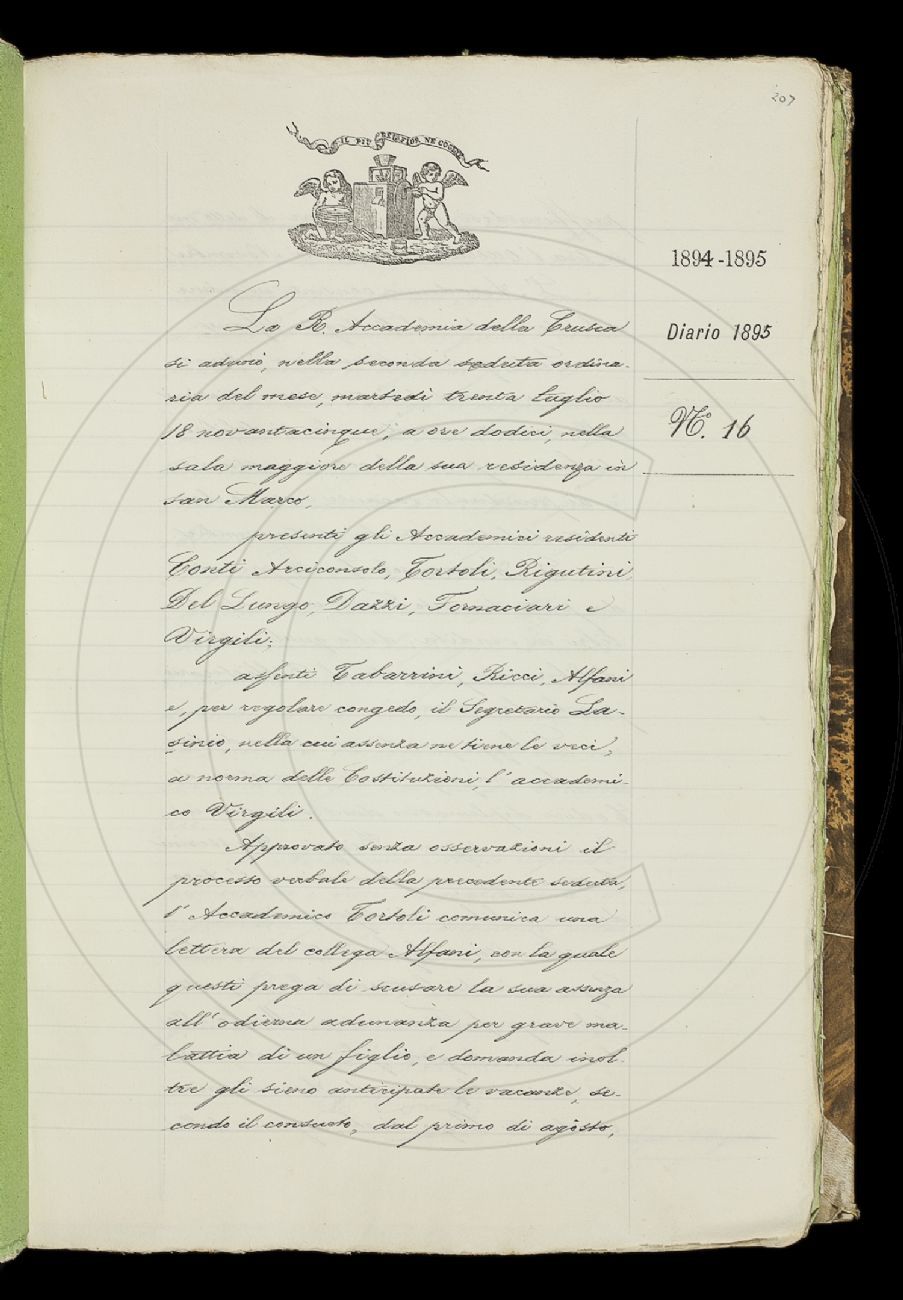 207
IL PIÙ BEL FIOR NE COGLIE
1894-1895
Diario 1895
N.° 16
La R. Accademia della Crusca
si adunò, nella seconda seduta ordina-
ria del mese, martedì trenta luglio
18 novantacinque, a ore dodici, nella
sala maggiore della sua residenza in
san Marco,
presenti gli Accademici residenti
Conti Arciconsolo, Tortoli, Rigutini
Del Lungo, Dazzi, Fornaciari e
Virgili;
assenti Tabarrini, Ricci, Alfani
e, per regolare congedo, il Segretario La-
sinio, nella cui assenza ne tiene le veci,
a norma delle Costituzioni, l'accademi-
co Virgili.
Approvato senza osservazioni il
processo verbale della precedente seduta,
l'Accademico Tortoli comunica una
lettera del collega Alfani, con la quale
questi prega di scusare la sua assenza
all'odierna adunanza per grave ma-
lattia di un figlio, e domanda inol-
tre gli sieno anticipate le vacanze, se-
condo il consueto, dal primo di agosto,